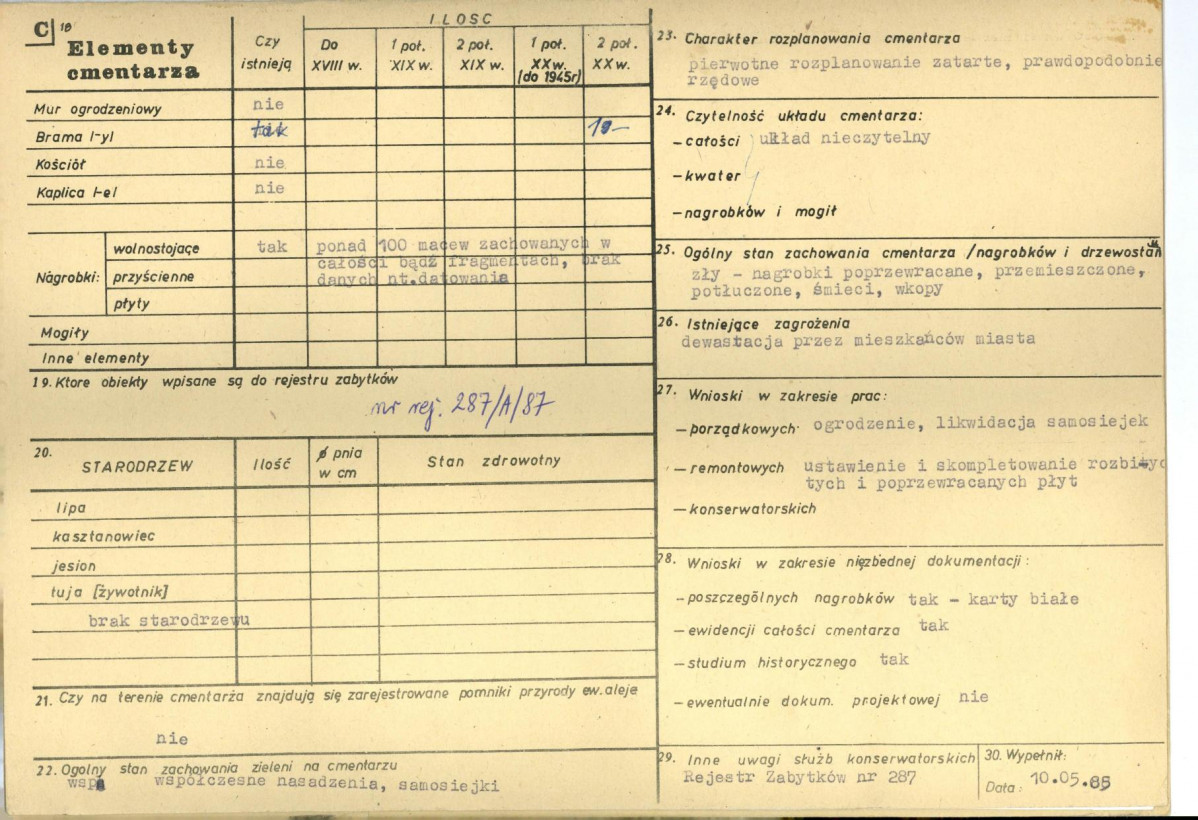 C 18
Elementy
cmentarza
Czy
istnieją
ILOSC
Do
XVIII w.
1 poł.
XIX w.
2 poł.
XIX w.
1 poł.
XX w.
(do 1945r)
2 poł.
XX w.
Mur ogrodzeniowy nie
Brama /-y/ tak
Kościół nie
Kaplica /-e/ nie
Nagrobki:
wolnostojące tak ponad 100 macew zachowanych w
całości bądź fragmentach, brak
przyścienne danych nt.datowania
płyty
Mogiły
Inne elementy
19. Ktore obiekty wpisane są do rejestru zabytków
nr rej. 287/A/87
20.
STARODRZEW
Ilość
ø pnia
w cm
Stan zdrowotny
lipa
kasztanowiec
jesion
tuja [żywotnik]
brak starodrzewu
21. Czy na terenie cmentarza znajdują się zarejestrowane pomniki przyrody ew. aleje
nie
22. Ogolny stan zachowania zieleni na cmentarzu
wsp współczesne nasadzenia, samosiejki
23. Charakter rozplanowania cmentarza
pierwotne rozplanowanie zatarte, prawdopodobnie
rzędowe
24. Czytelność układu cmentarza:
- całości układ nieczytelny
- kwater
- nagrobków i mogił
25. Ogólny stan zachowania cmentarza /nagrobków i drzewostan
zły - nagrobki poprzewracane, przemieszczone,
potłuczone, śmieci, wkopy
26. Istniejące zagrożenia
dewastacja przez mieszkańców miasta
27. Wnioski w zakresie prac:
- porządkowych ogrodzenie, likwidacja samosiejek
- remontowych ustawienie i skompletowanie rozbity
tych i poprzewracanych płyt
- konserwatorskich
28. Wnioski w zakresie niezbednej dokumentacji:
- poszczególnych nagrobków tak - karty białe
- ewidencji całości cmentarza tak
- studium historycznego tak
- ewentualnie dokum. projektowej nie
29. Inne uwagi służb konserwatorskich
Rejestr Zabytków nr 287
30. Wypełnił:
Data: 10.05.88